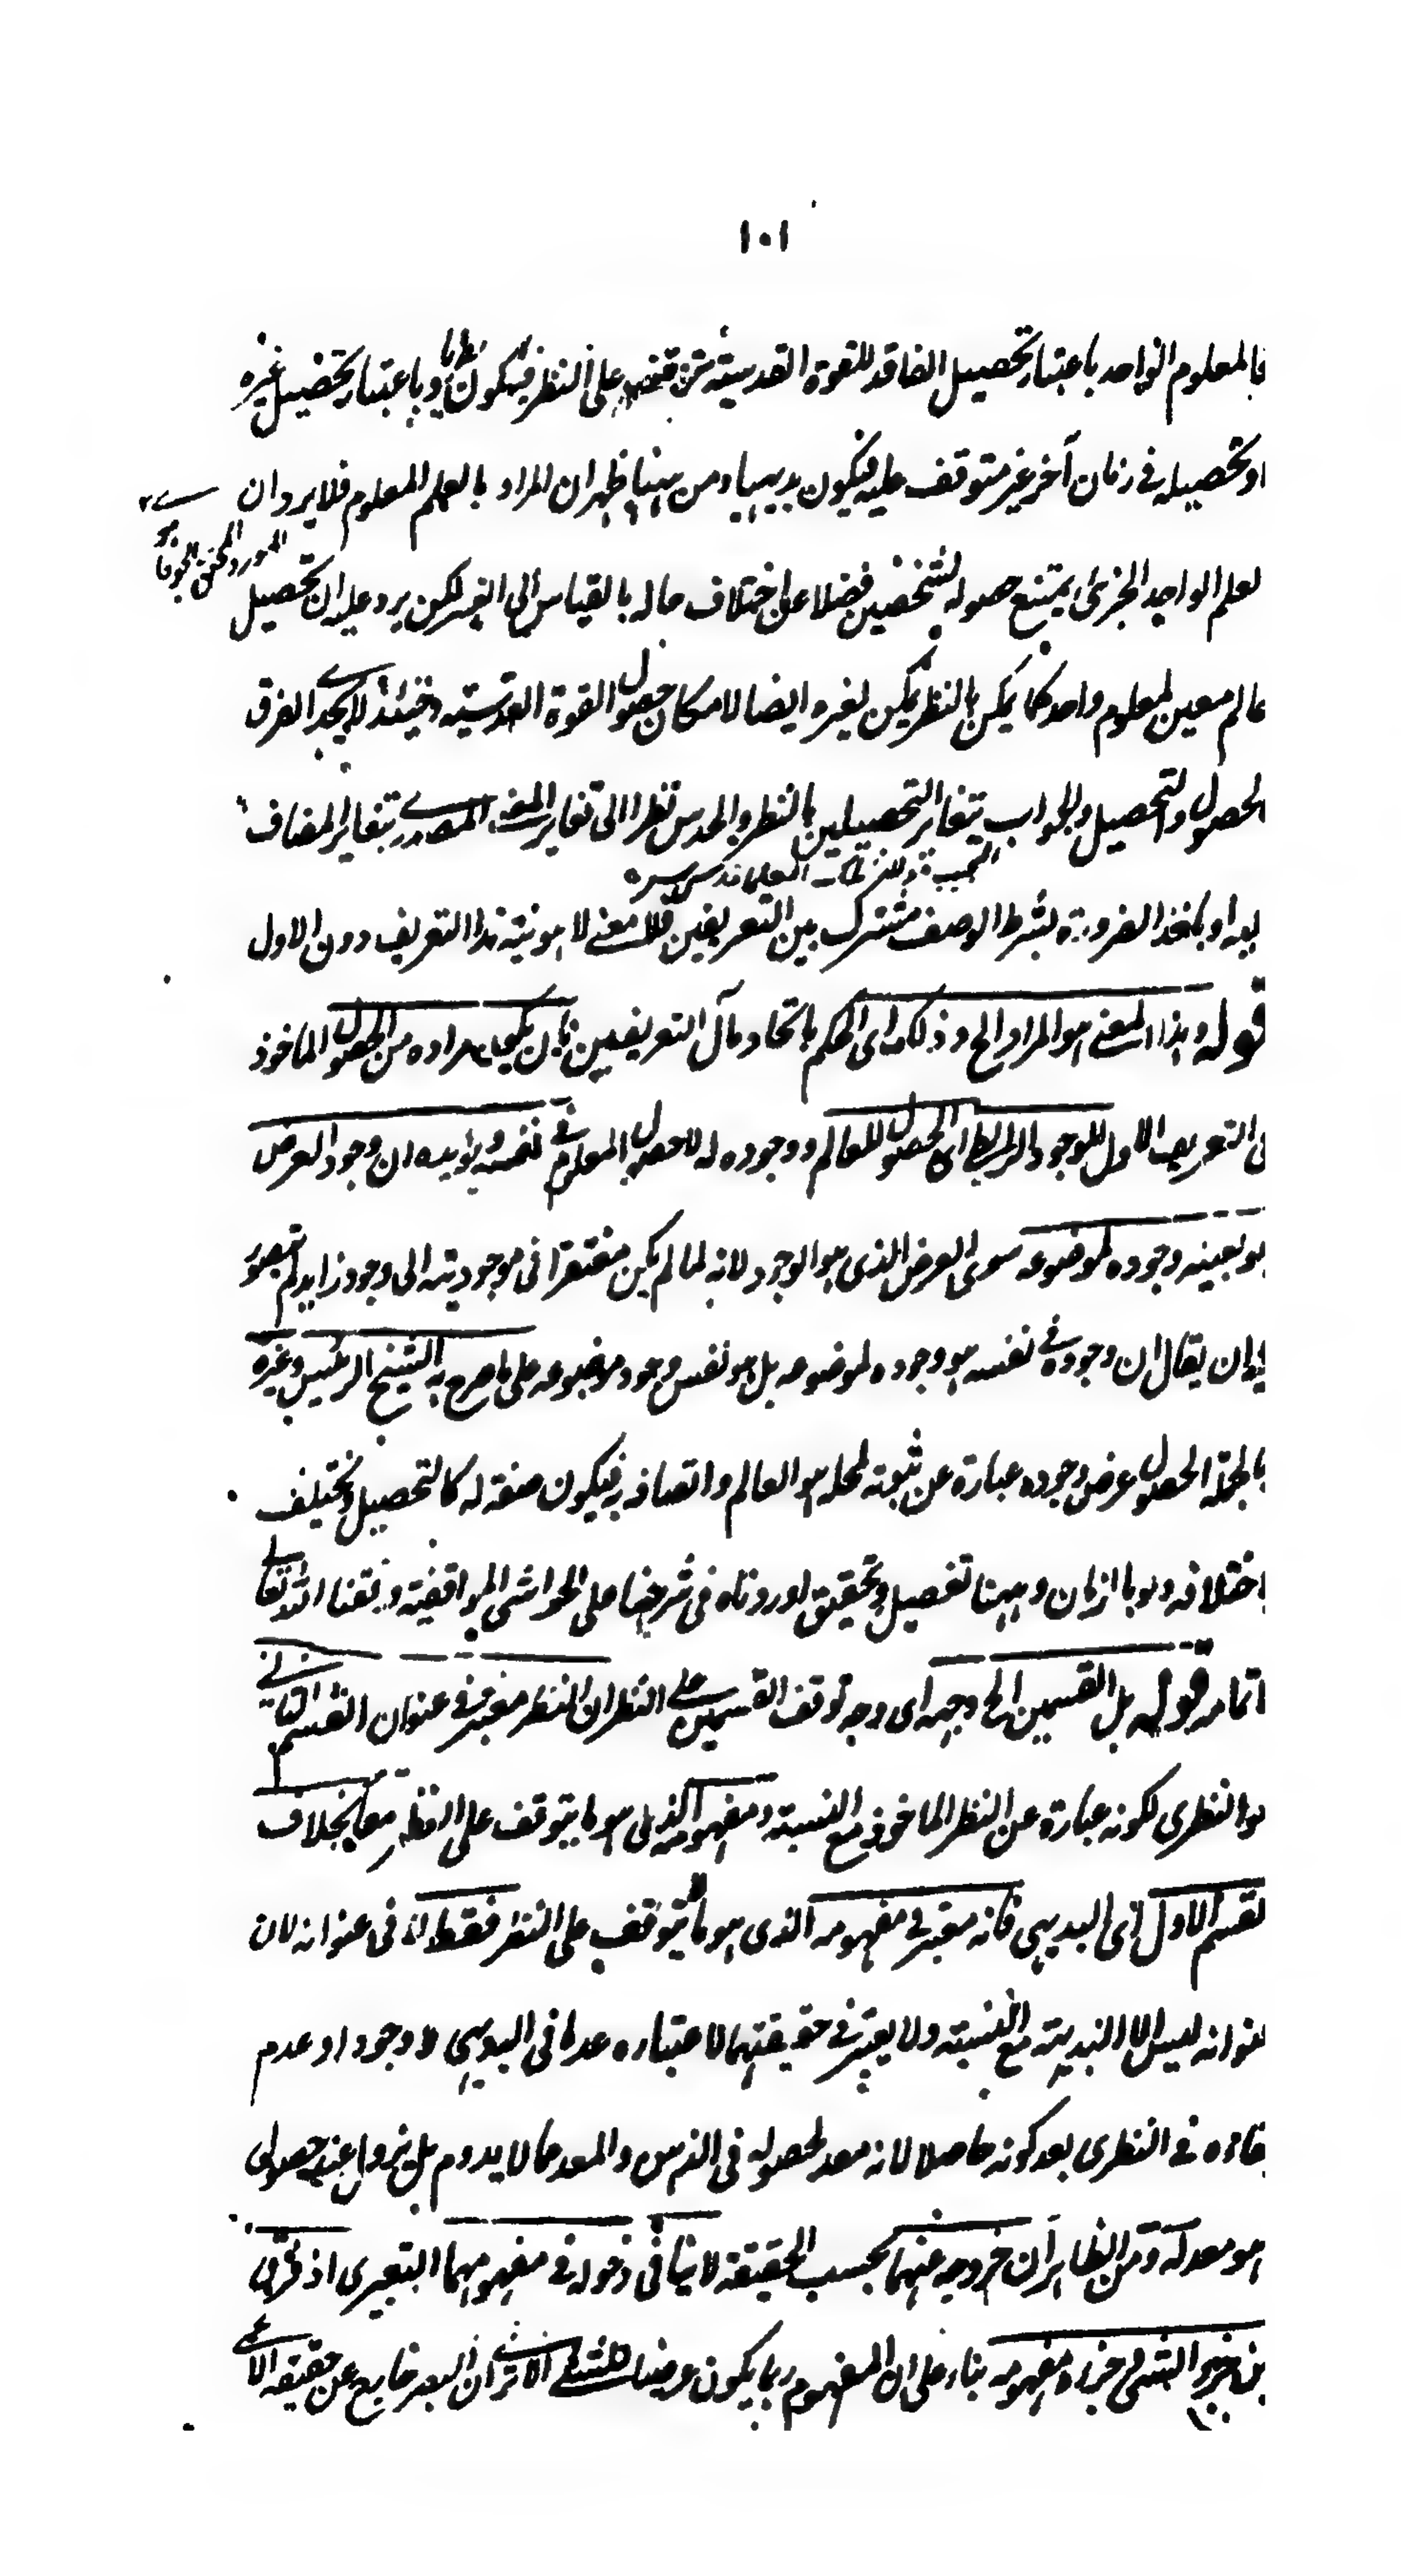 ١٠١
فالمعلوم الواحد باعتبار تحصيل الفاقد للقوة القدسية متوقف على النظر فيكون نظريا وباعتبار تحصيل غيره
او تحصيله فى زمان آخر غير متوقف عليه فيكون بديهيا ومن ههنا ظهر ان المراد بالعلم المعلوم فلا يرد ان
المورد المحقق
لعلم الواحد الجزئى يمتنع حصوله لشخصين فضلا عن اختلاف حاله بالقياس الى الغير لكن يرد عليه ان تحصيل
عالم معين لمعلوم واحد كما يمكن بالنظر يمكن بغيره ايضا لامكان حصول القوة القدسية وحينئذ لا يجدى الفرق
لحصول والتحصيل والجواب بتغاير التحصيلين بالنظر والحدس نظرا الى تغاير المعنى المصدرى بتغاير المضاف
المعلم قدس سره
ليه او باخذ الضرورة بشرط الوصف مشترك بين التعريفين فلا معنى لاهونية هذا التعريف دون الاول
قوله وهذا المعنى هو المراد الخ وذلك اى الحكم باتحاد مآل التعريفين بان يكون مراده من الحصول الماخوذ
فى التعريف الاول للوجود الرابطى اى الحصول للعالم ووجوده له لا حصول المعلوم فى نفسه ويؤيده ان وجود العرض
هو بعينه وجوده لموضوعه سوى العرض الذى هو الوجود لانه لما لم يكن مفتقرا فى موجوديته الى وجود زايد لم يتصور
ان يقال ان وجوده فى نفسه هو وجوده لموضوعه بل هو نفس وجود موضوعه على ما صرح به الشيخ الرئيس وغيره
بالجملة الحصول عرض وجوده عبارة عن ثبوته لمحله هو العالم واتصافه به فيكون صفة له كالتحصيل ويختلف
باختلافه ولو بالزمان وههنا تفصيل وتحقيق اوردناه فى شرحنا على الحواشى المواقفية وفقنا الله تعالى
اتمامه قوله بل القسمين الخ وجهه اى وجه توقف القسمين على النظر ان النظر معتبر فى عنوان القسم الثانى
هو النظرى لكونه عبارة عن النظر الماخوذ مع النسبة ومفهومه الذى هو ما يتوقف على النظر معا بخلاف
لقسم الاول اى البديهى فانه معتبر فى مفهومه الذى هو ما لا يتوقف على النظر فقط لا فى عنوانه لان
عنوانه ليس الا البديهة مع النسبة ولا يعتبر فى حقيقتهما لاعتباره عدما فى البديهى ولا وجودا وعدم
بقاءه فى النظرى بعد كونه حاصلا لانه معد لحصوله فى الذهن والمعد مما لا يدوم بل يزول عند حصول
هو معد له ومن الظاهر ان خروجه عنهما بحسب الحقيقة لا ينافى دخوله فى مفهومهما التعبيرى اذ
من خير الشئ جزء مفهومه بناء على ان المفهوم ربما يكون عرضيا للشئ الا ترى ان البصر خارج عن حقيقة الاعمى